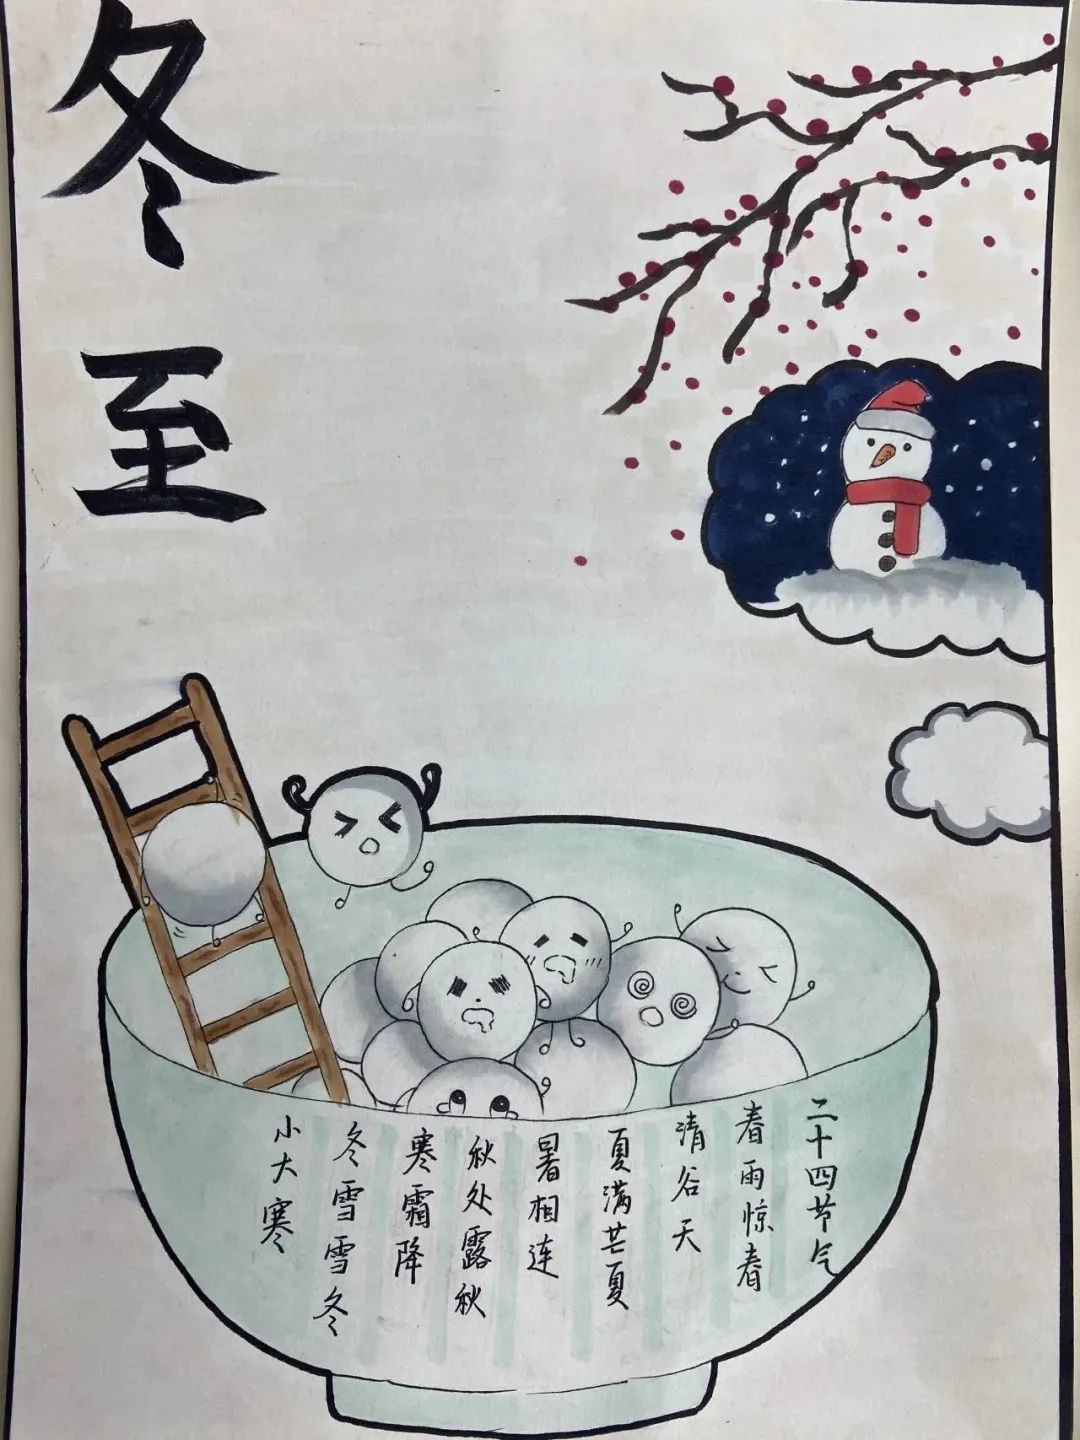 冬至
二十四节气
春雨惊春
清谷天
夏满芒夏
暑相连
秋处露秋
寒霜降
冬雪雪冬
小大寒